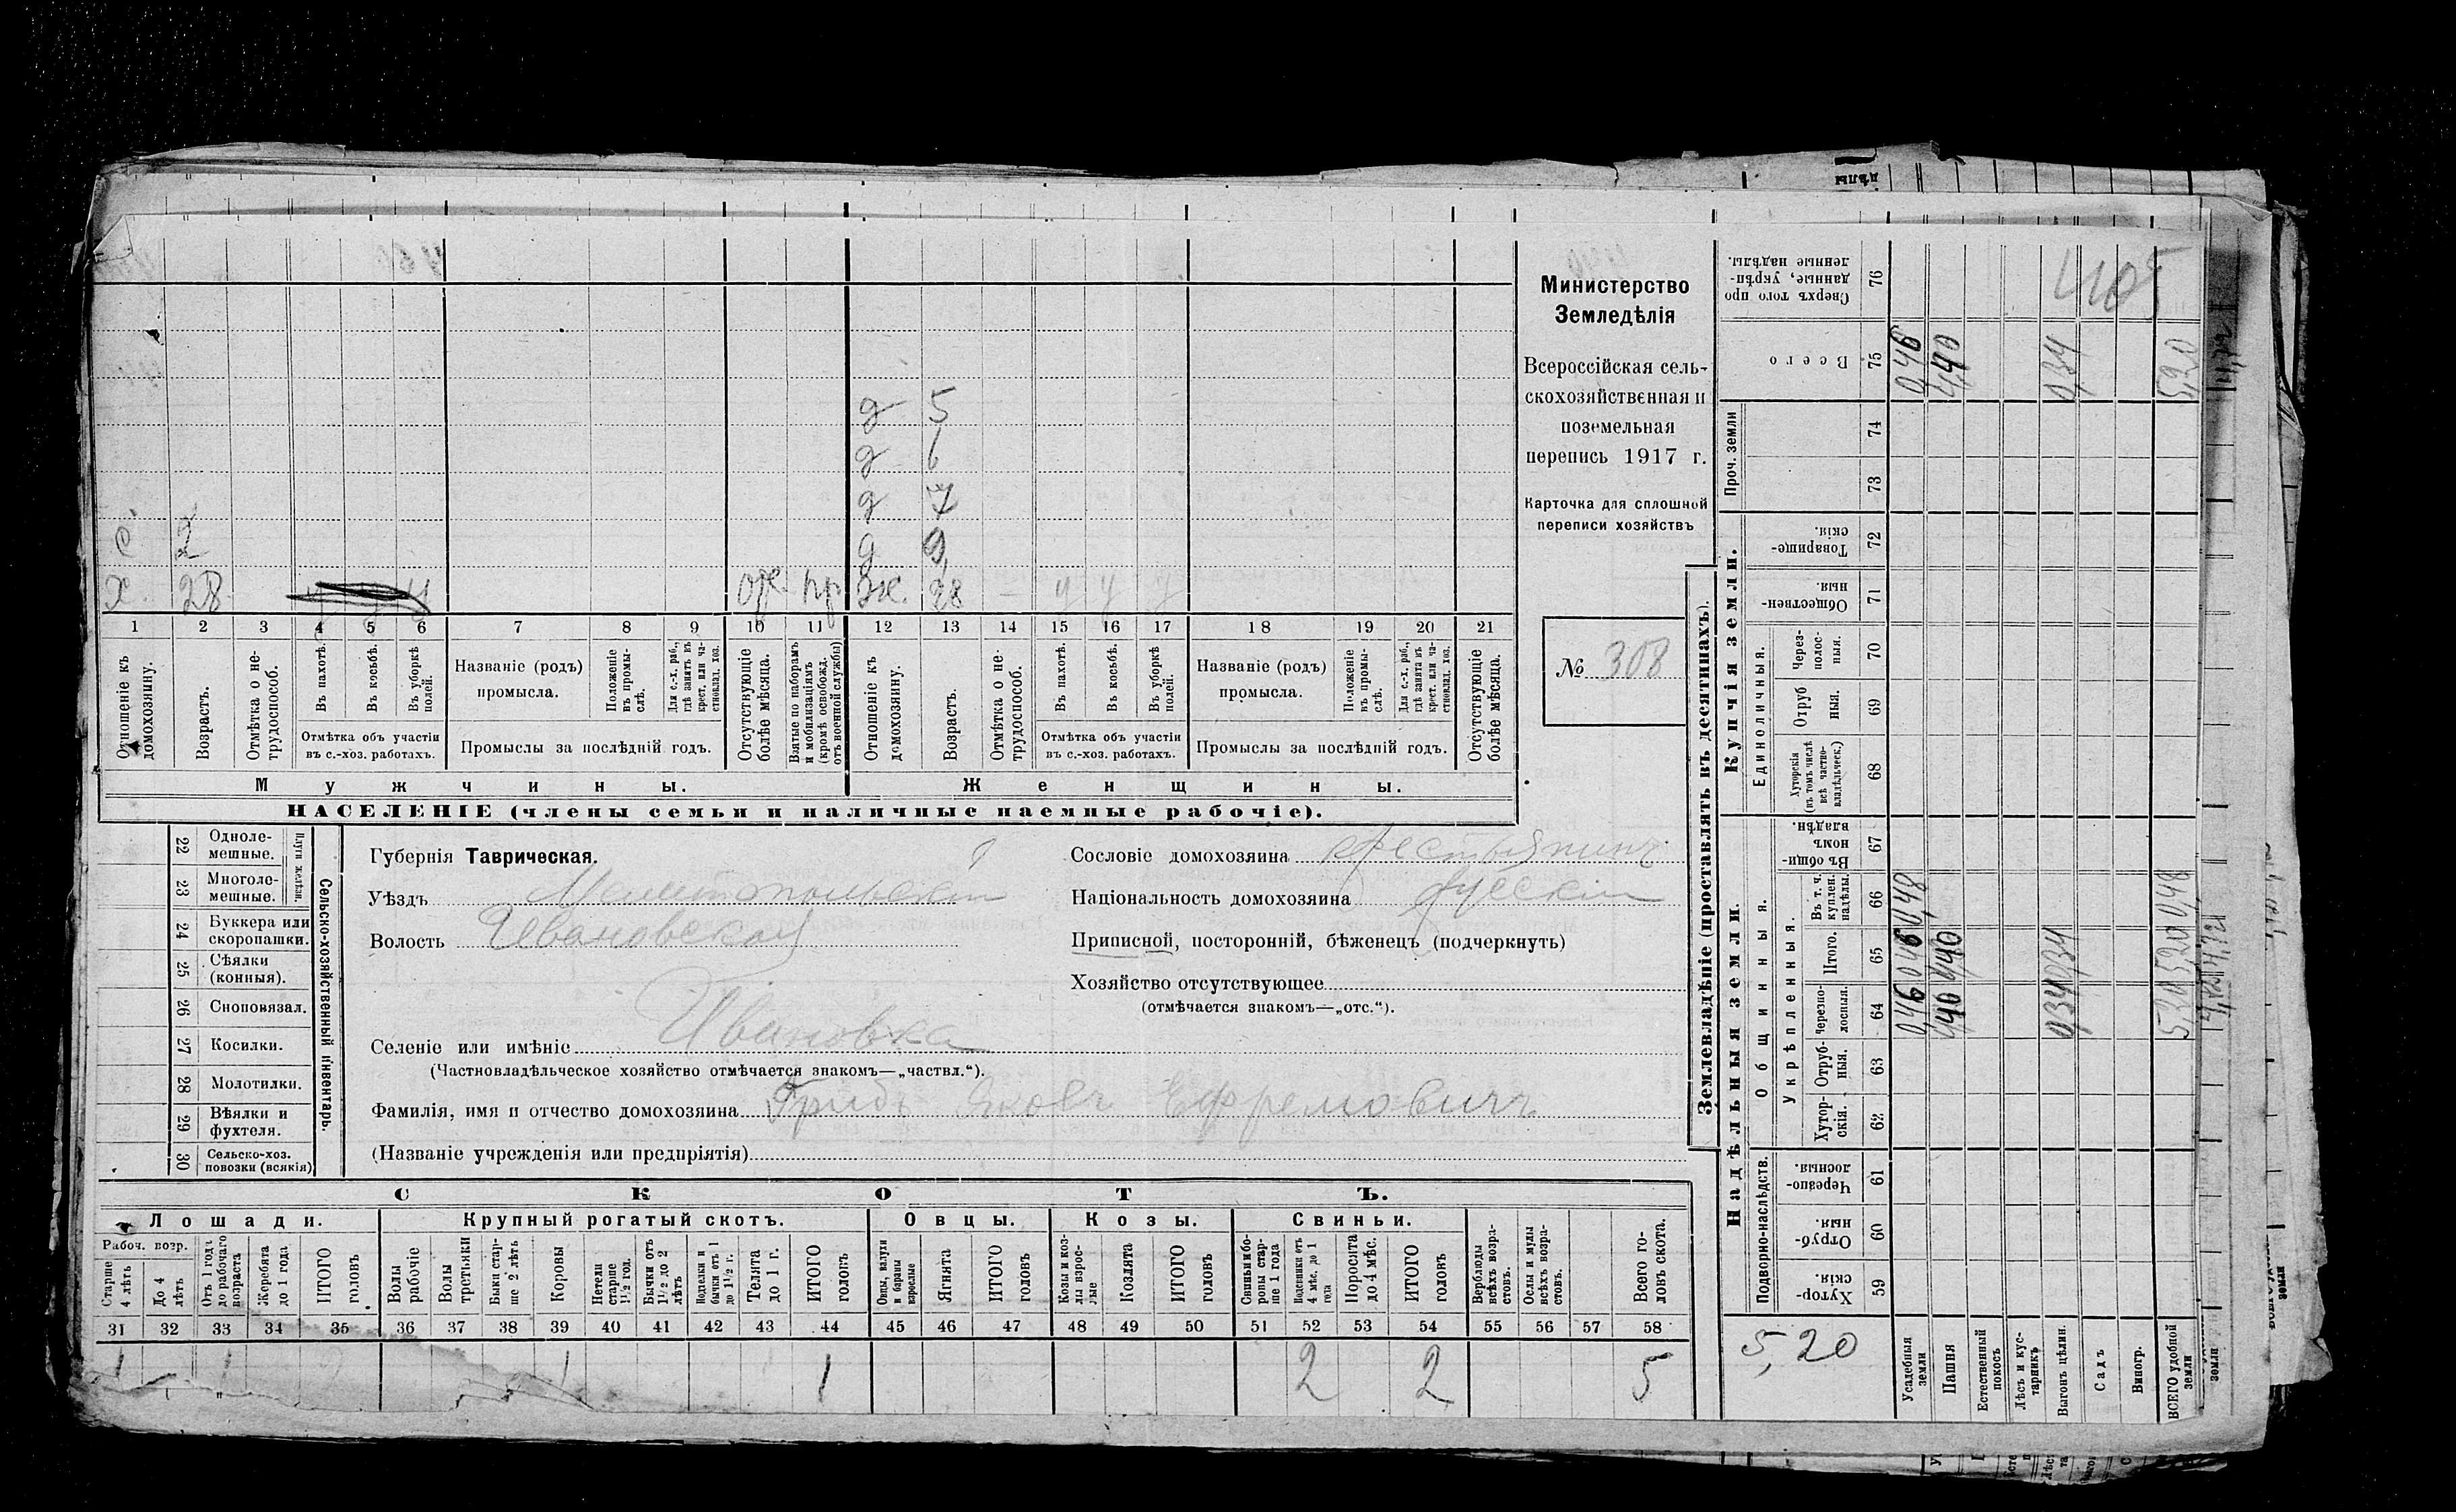 Министерство
Земледѣлія
Всероссійская сель-
скохозяйственная и
поземельная
перепись 1917 г.
Карточка для сплошной
переписи хозяйствъ
№ 308
д 5
д 6
д 7
с 2 д 9
х. 28 пр ж. 28 — у у у
1 2 3 4 5 6 7 8 9 10 11 12 13 14 15 16 17 18 19 20 21
Отношеніе къ домохозяину.
Возрастъ.
Отмѣтка о не-трудоспособ.
Въ пахотѣ.
Въ косьбѣ.
Въ уборкѣ полей.
Отмѣтка объ участіи въ с.-хоз. работахъ.
Названіе (родъ) промысла.
Положеніе въ промы-слѣ.
Для с.-х. раб., гдѣ занятъ въ крест. или ча-стновлад. хоз.
Промыслы за послѣдній годъ.
Отсутствующіе болѣе мѣсяца.
Взятые по наборамъ и мобилизаціямъ (кромѣ освобожд. отъ военной службы)
Отношеніе къ домохозяину.
Возрастъ.
Отмѣтка о не-трудоспособ.
Въ пахотѣ.
Въ косьбѣ.
Въ уборкѣ полей.
Отмѣтка объ участіи въ с.-хоз. работахъ.
Названіе (родъ) промысла.
Положеніе въ промы-слѣ.
Для с.-х. раб., гдѣ занята въ крест. или ча-стновлад. хоз.
Промыслы за послѣдній годъ.
Отсутствующіе болѣе мѣсяца.
Мужчины. Женщины.
НАСЕЛЕНІЕ (члены семьи и наличные наемные рабочіе).
Сельско-хозяйственный инвентарь.
Плуги желѣзн.
22 Одноле-мешные.
23 Многоле-мешные.
24 Буккера или скоропашки.
25 Сѣялки (конныя).
26 Сноповязал.
27 Косилки.
28 Молотилки.
29 Вѣялки и фухтеля.
30 Сельско-хоз. повозки (всякія)
Губернія Таврическая.
Уѣздъ Мелитопольскій
Волость Ивановской
Селеніе или имѣніе Ивановка
(Частновладѣльческое хозяйство отмѣчается знакомъ—„частвл.“).
Фамилія, имя и отчество домохозяина Грибъ Яковъ Ефремовичъ
(Названіе учрежденія или предпріятія)
Сословіе домохозяина крестьянинъ
Національность домохозяина русскій
Приписной, посторонній, бѣженецъ (подчеркнуть)
Хозяйство отсутствующее
(отмѣчается знакомъ—„отс.“).
СКОТЪ.
Лошади. Крупный рогатый скотъ. Овцы. Козы. Свиньи.
Рабоч. возр.
Старше 4 лѣтъ
До 4 лѣтъ
Отъ 1 года до рабочаго возраста
Жеребята до 1 года
ИТОГО головъ
Волы рабочіе
Волы третьяки
Быки стар-ше 2 лѣтъ
Коровы
Нетели старше 1½ год.
Бычки отъ 1½ до 2 лѣтъ
Подтелки и бычки отъ 1 до 1½ г.
Телята до 1 г.
ИТОГО головъ
Овцы, валухи и бараны взрослые
Ягнята
ИТОГО головъ
Козы и коз-лы взрос-лые
Козлята
ИТОГО головъ
Свиньи и бо-ровы стар-ше 1 года
Подсвинки отъ 4 мѣс. до 1 года
Поросята до 4 мѣс.
ИТОГО головъ
Верблюды всѣхъ возра-стовъ.
Ослы и мулы всѣхъ возра-стовъ.
Всего го-ловъ скота.
31 32 33 34 35 36 37 38 39 40 41 42 43 44 45 46 47 48 49 50 51 52 53 54 55 56 57 58
1 1 1 1 2 2 5
Землевладѣніе (проставлять въ десятинахъ).
Надѣльныя земли.
Купчія земли.
Проч. земли
Подворно-наслѣдств.
Общинныя.
Укрѣпленныя.
Единоличныя.
59 Хутор-скія.
60 Отруб-ныя.
61 Черезпо-лосныя.
62 Хутор-скія.
63 Отруб-ныя.
64 Черезпо-лосныя.
65 Итого.
66 Въ т. ч. куплен. надѣлы.
67 Въ общи-номъ владѣн.
68 Хуторскія (въ томъ числѣ всѣ частно-владѣльческ.)
69 Отруб ныя.
70 Через-полос-ныя.
71 Обществен-ныя.
72 Товарище-скія.
73
74
75 Всего
76 Сверхъ того про данные, укрѣп-ленные надѣлы.
5,20
Усадебныя земли 0,46 0,46 0,48 0,46
Пашня 4,40 4,40 4,40
Естественный покосъ
Лѣсъ и кус-тарникъ
Выгонъ цѣлин. 0,34 0,34 0,34
Садъ
Виногр.
ВСЕГО удобной земли 5,20 5,20 0,48 5,20
405